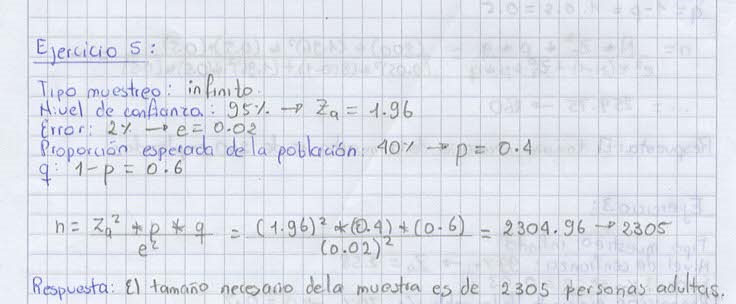 Ejercicio 5:
Tipo muestreo: infinito.
Nivel de confianza: 95% → Za = 1.96
Error: 2% → e = 0.02
Proporción esperada de la población: 40% → p = 0.4
q: 1-p = 0.6
n = Za² * p * q / e² = (1.96)² * (0.4) * (0.6) / (0.02)² = 2304.96 → 2305
Respuesta: El tamaño necesario de la muestra es de 2305 personas adultas.